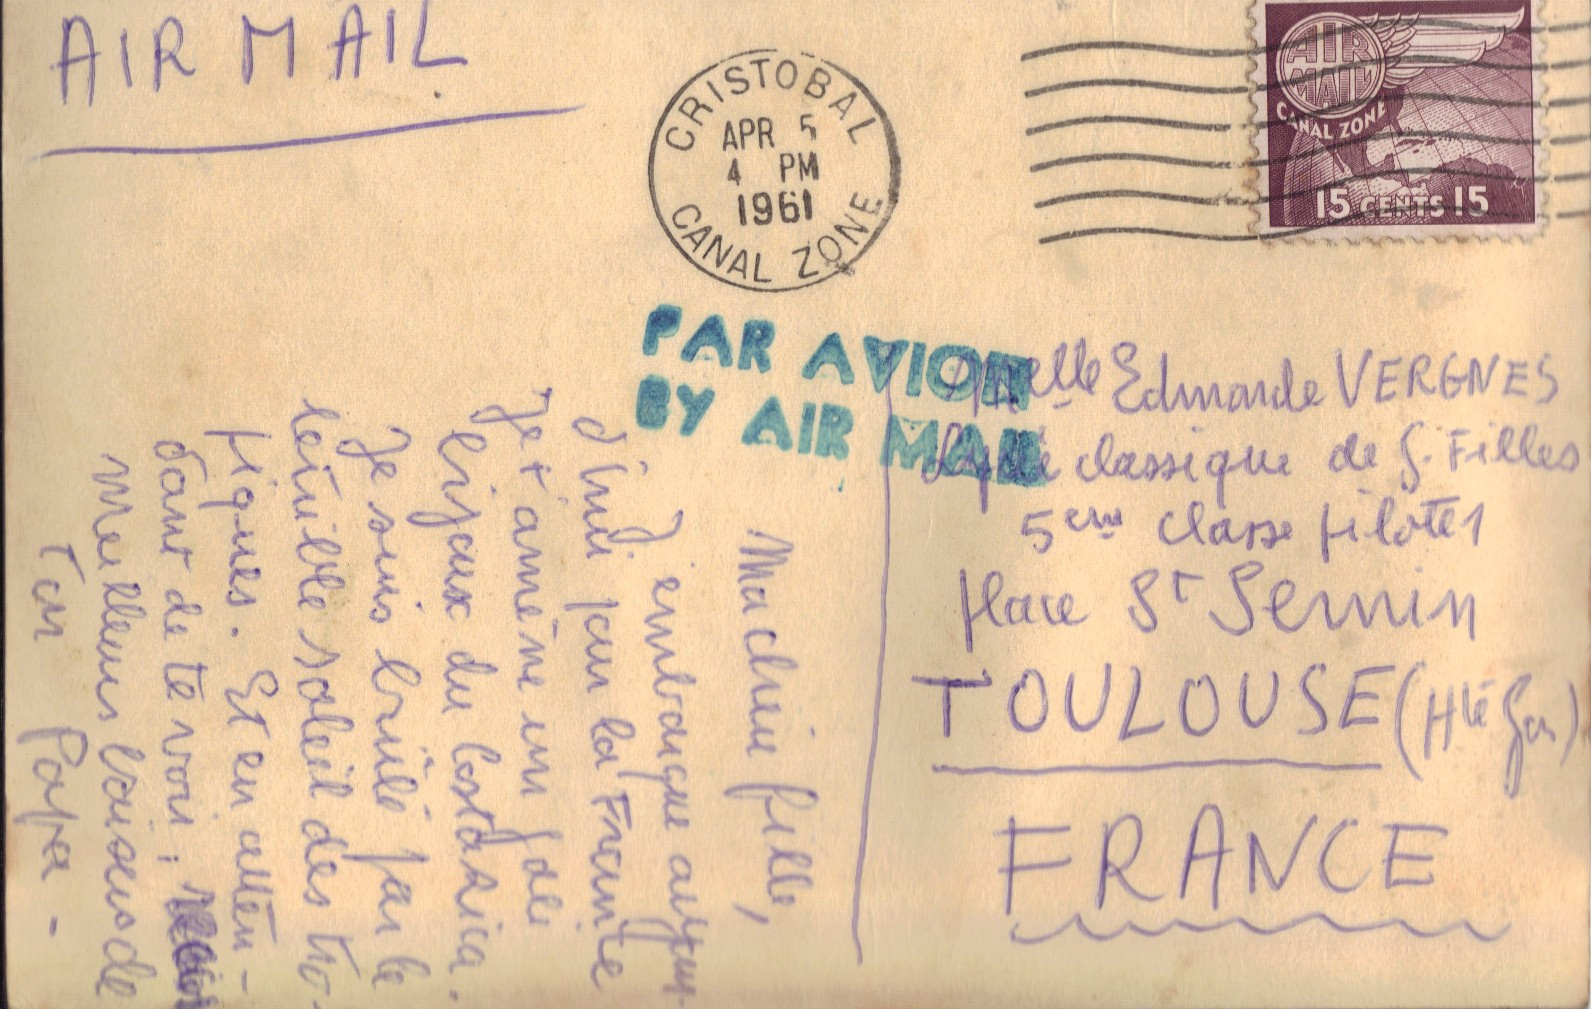 AIR MAIL.
CRISTOBAL
APR 5
4 PM
1961
CANAL ZONE
AIR
MAIL
CANAL ZONE
15 CENTS 15
PAR AVION
BY AIR MAIL
Melle Edmonde VERGNES
Lycée classique de J. Filles
5eme classe pilote 1
place St Sernin
TOULOUSE (Hte Gar)
FRANCE
Ma chérie fille,
J'embarque aujour-
d'hui pour la France
Je t'amène un joli
bijoux du Costa Rica.
Je suis brulé par le
terrible soleil des tro-
piques. Et en atten-
dant de te voir,
meilleurs baisers de
Ton Papa -